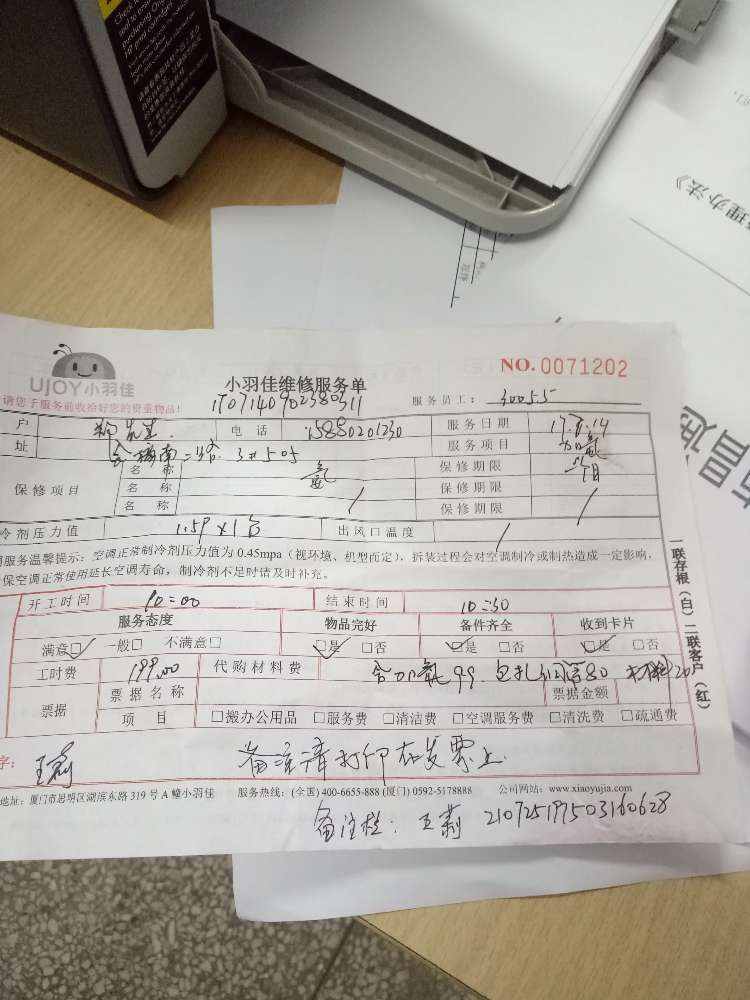 理办法》
NO. 0071202
UJOY小羽佳
小羽佳维修服务单
请您于服务前收拾好您的贵重物品!
服务员工: 30055
户 先生 电话 15880201230 服务日期 17.7.14
址 3#505 服务项目 加氟
保修项目 名称 氟 保修期限
名称 保修期限
名称 保修期限
冷剂压力值 出风口温度
服务温馨提示:空调正常制冷剂压力值为 0.45mpa(视环境、机型而定),拆装过程会对空调制冷或制热造成一定影响,
保空调正常使用延长空调寿命,制冷剂不足时请及时补充。
开工时间 10=00 结束时间 10=30
服务态度 物品完好 备件齐全 收到卡片
满意☑ 一般□ 不满意□ ☑是 □否 ☑是 □否 ☑是 □否
工时费 199.00 代购材料费 含加氟99.
票据 票据名称 票据金额
项目 □搬办公用品 □服务费 □清洁费 □空调服务费 □清洗费 □疏通费
一联存根(白)二联客户(红)
字: 王莉 备注请打印在发票上
地址:厦门市思明区湖滨东路 319 号 A 幢小羽佳 服务热线:(全国) 400-6655-888 (厦门) 0592-5178888 公司网站:www.xiaoyujia.com
备注栏: 王莉 210725197503160628